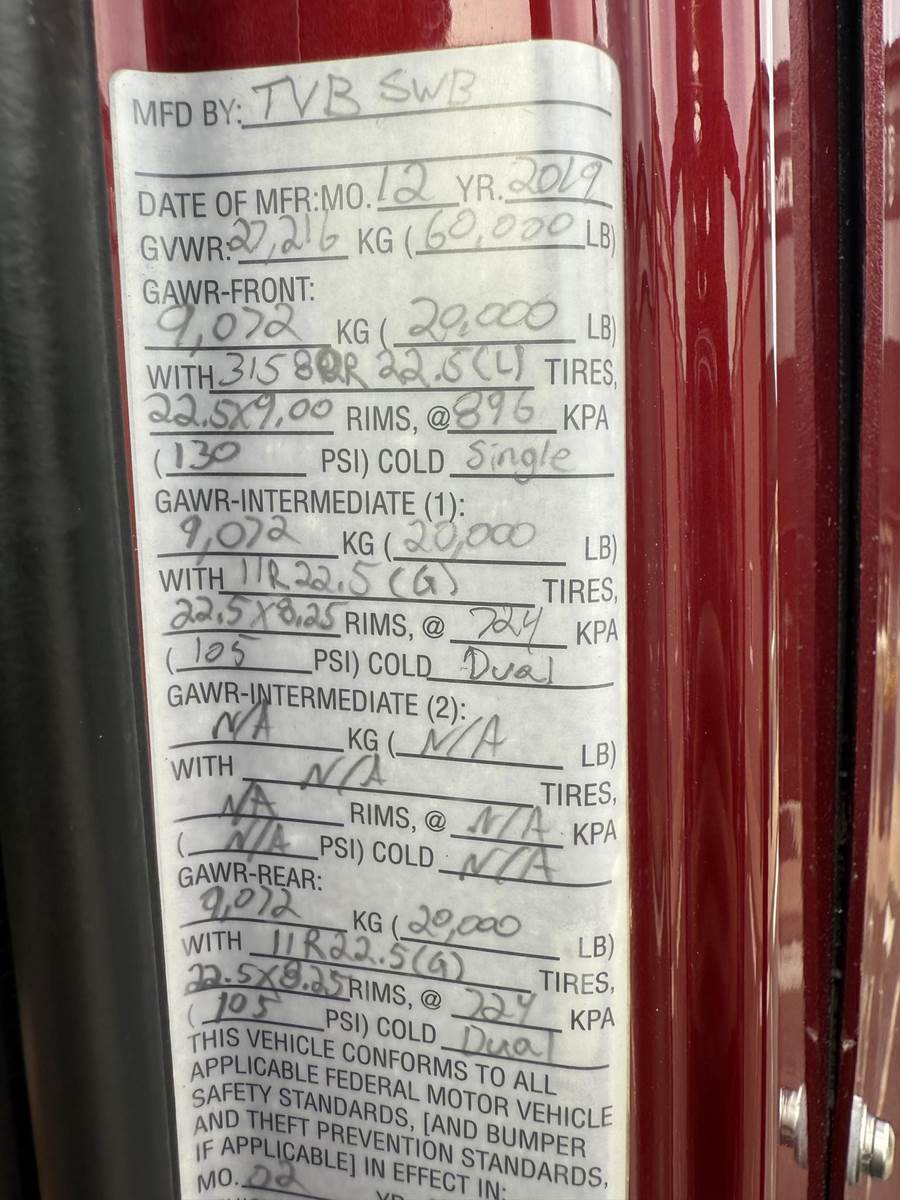 MFD BY: TVB SWB
DATE OF MFR:MO. 12 YR. 2019
GVWR: 27,216 KG (60,000 LB)
GAWR-FRONT:
9,072 KG (20,000 LB)
WITH 31580R 22.5(L) TIRES,
22.5X9.00 RIMS, @ 896 KPA
(130 PSI) COLD Single
GAWR-INTERMEDIATE (1):
9,072 KG (20,000 LB)
WITH 11R22.5 (G) TIRES,
22.5X8.25 RIMS, @ 724 KPA
(105 PSI) COLD Dual
GAWR-INTERMEDIATE (2):
N/A KG (N/A LB)
WITH N/A TIRES,
N/A RIMS, @ N/A KPA
(N/A PSI) COLD N/A
GAWR-REAR:
9,072 KG (20,000 LB)
WITH 11R22.5(G) TIRES,
22.5X8.25 RIMS, @ 724 KPA
(105 PSI) COLD Dual
THIS VEHICLE CONFORMS TO ALL
APPLICABLE FEDERAL MOTOR VEHICLE
SAFETY STANDARDS, [AND BUMPER
AND THEFT PREVENTION STANDARDS,
IF APPLICABLE] IN EFFECT IN:
MO. 02